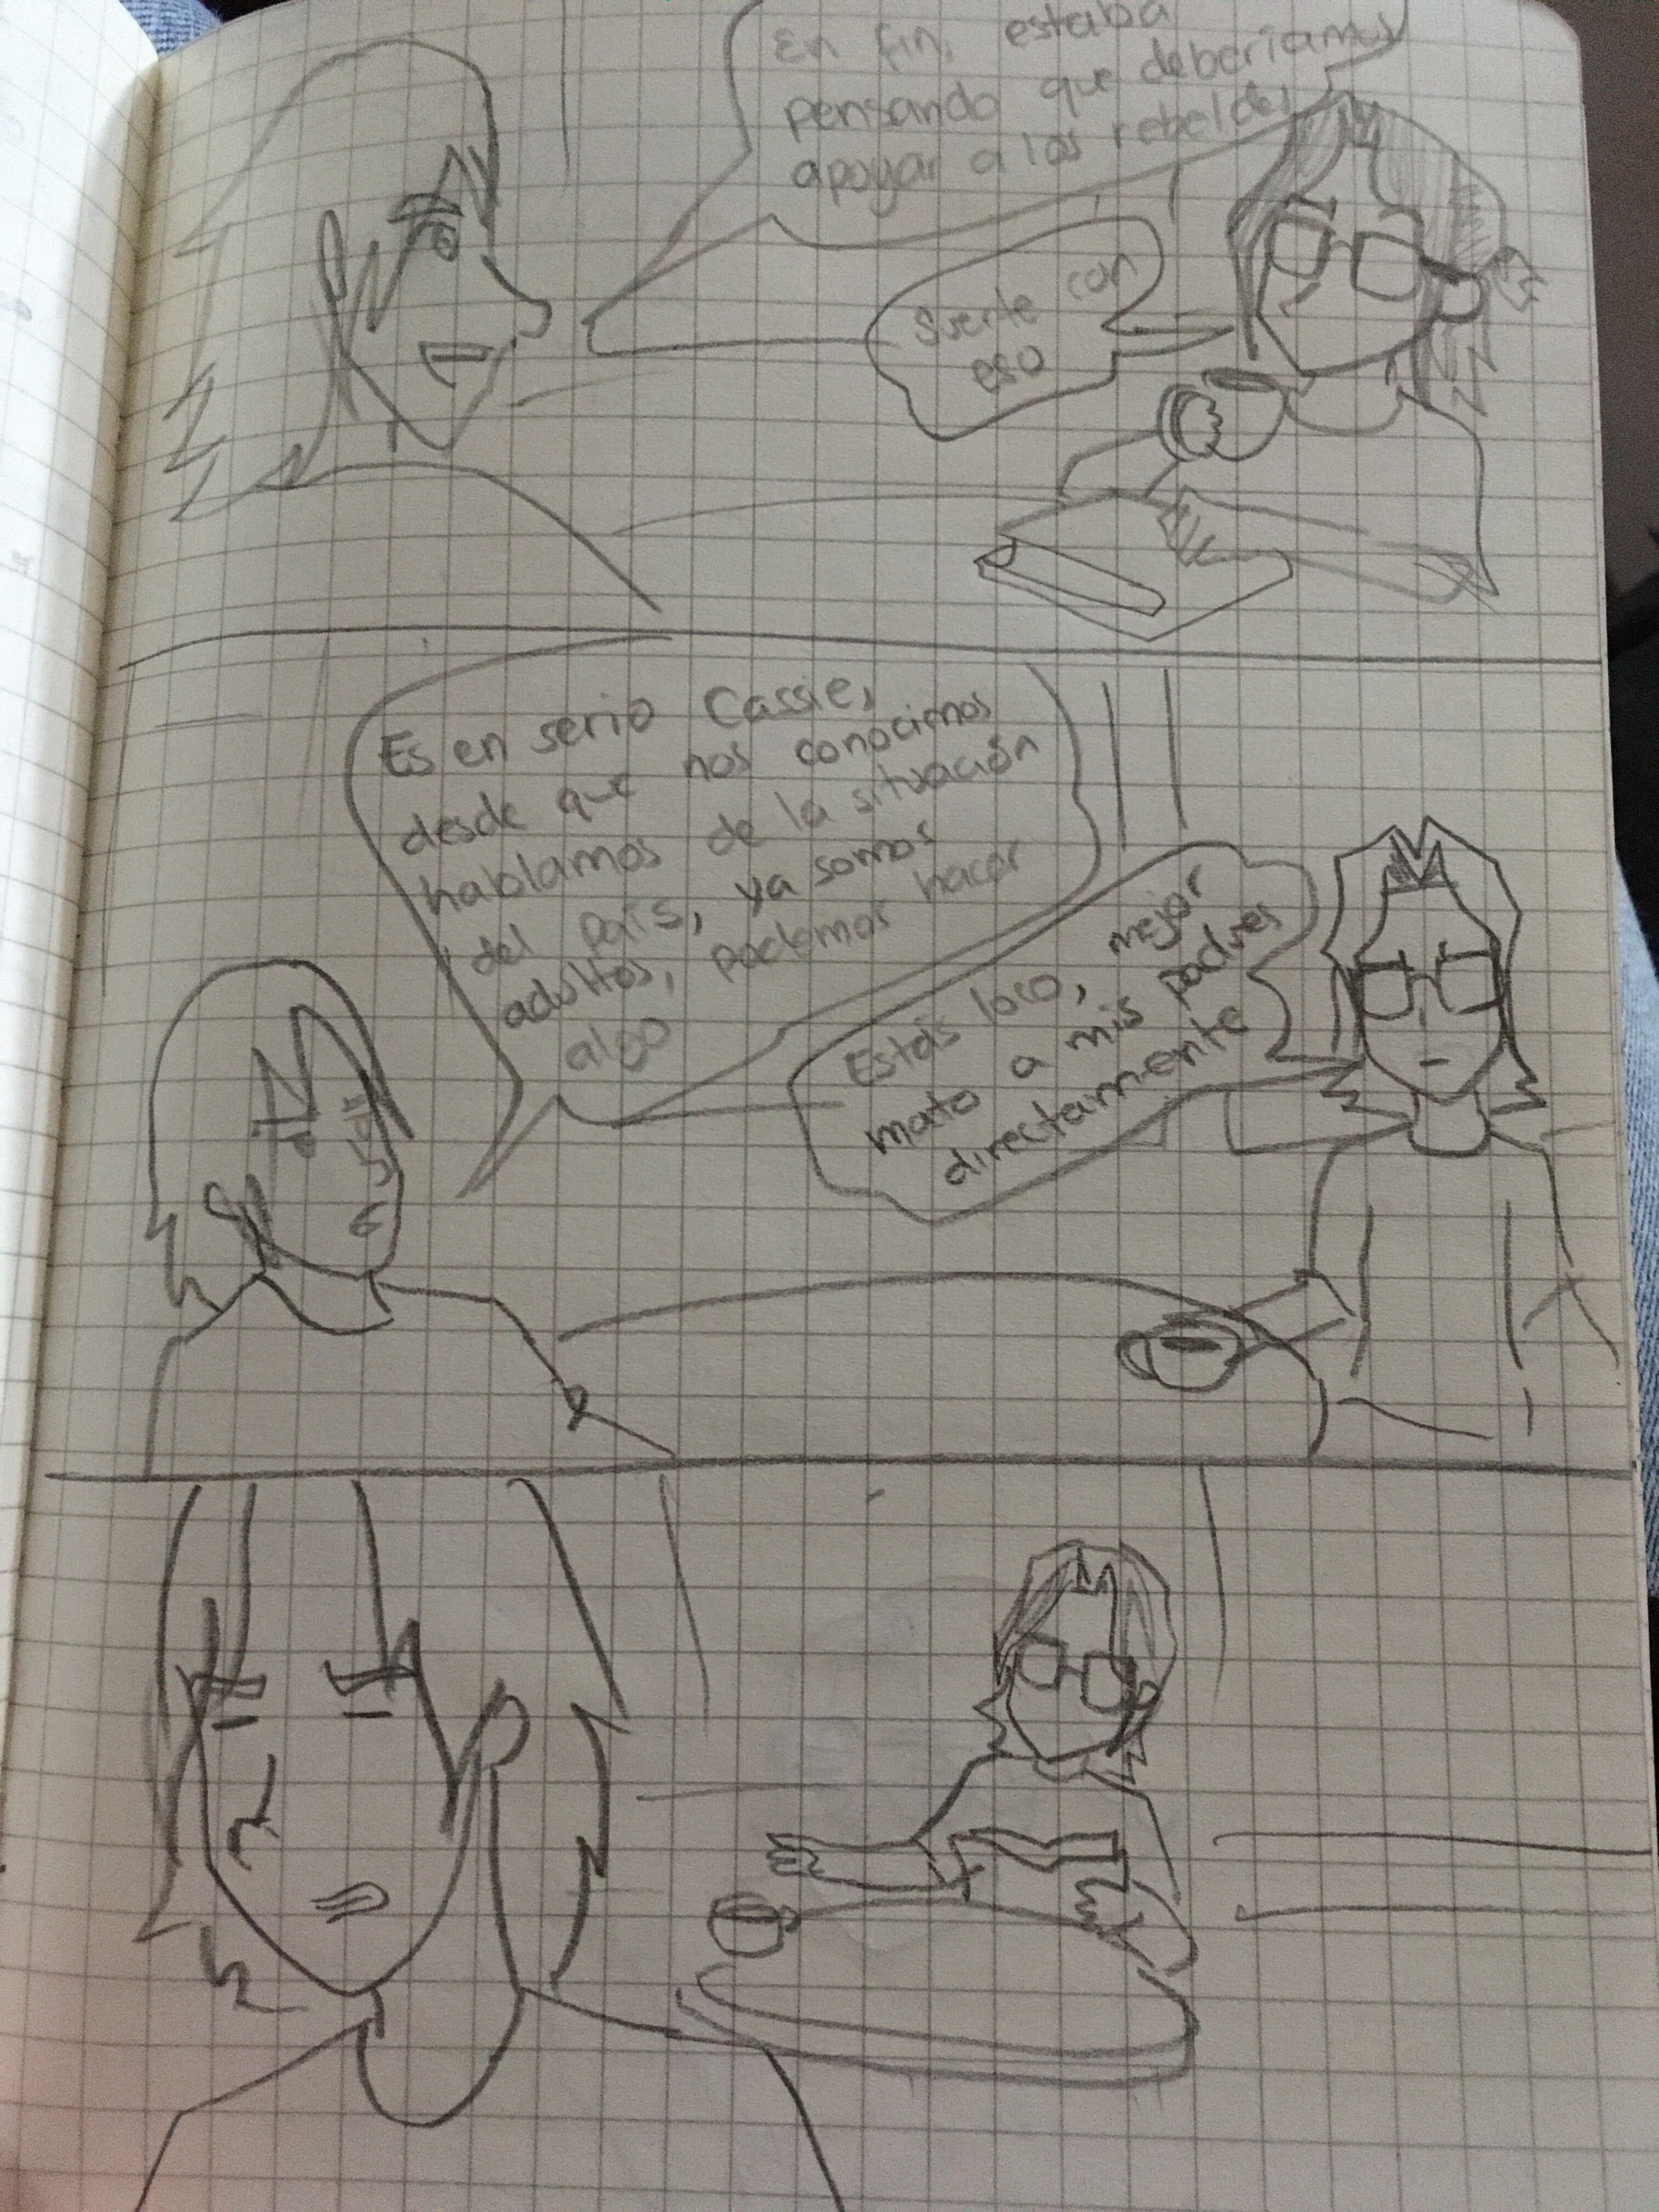 En fin, estaba
pensando que deberíamos
apoyar a los rebeldes
Suerte con
eso
Es en serio Cassie,
desde que nos conocimos
hablamos de la situación
del país, ya somos
adultos, podemos hacer
algo
Estás loco, mejor
mato a mis padres
directamente